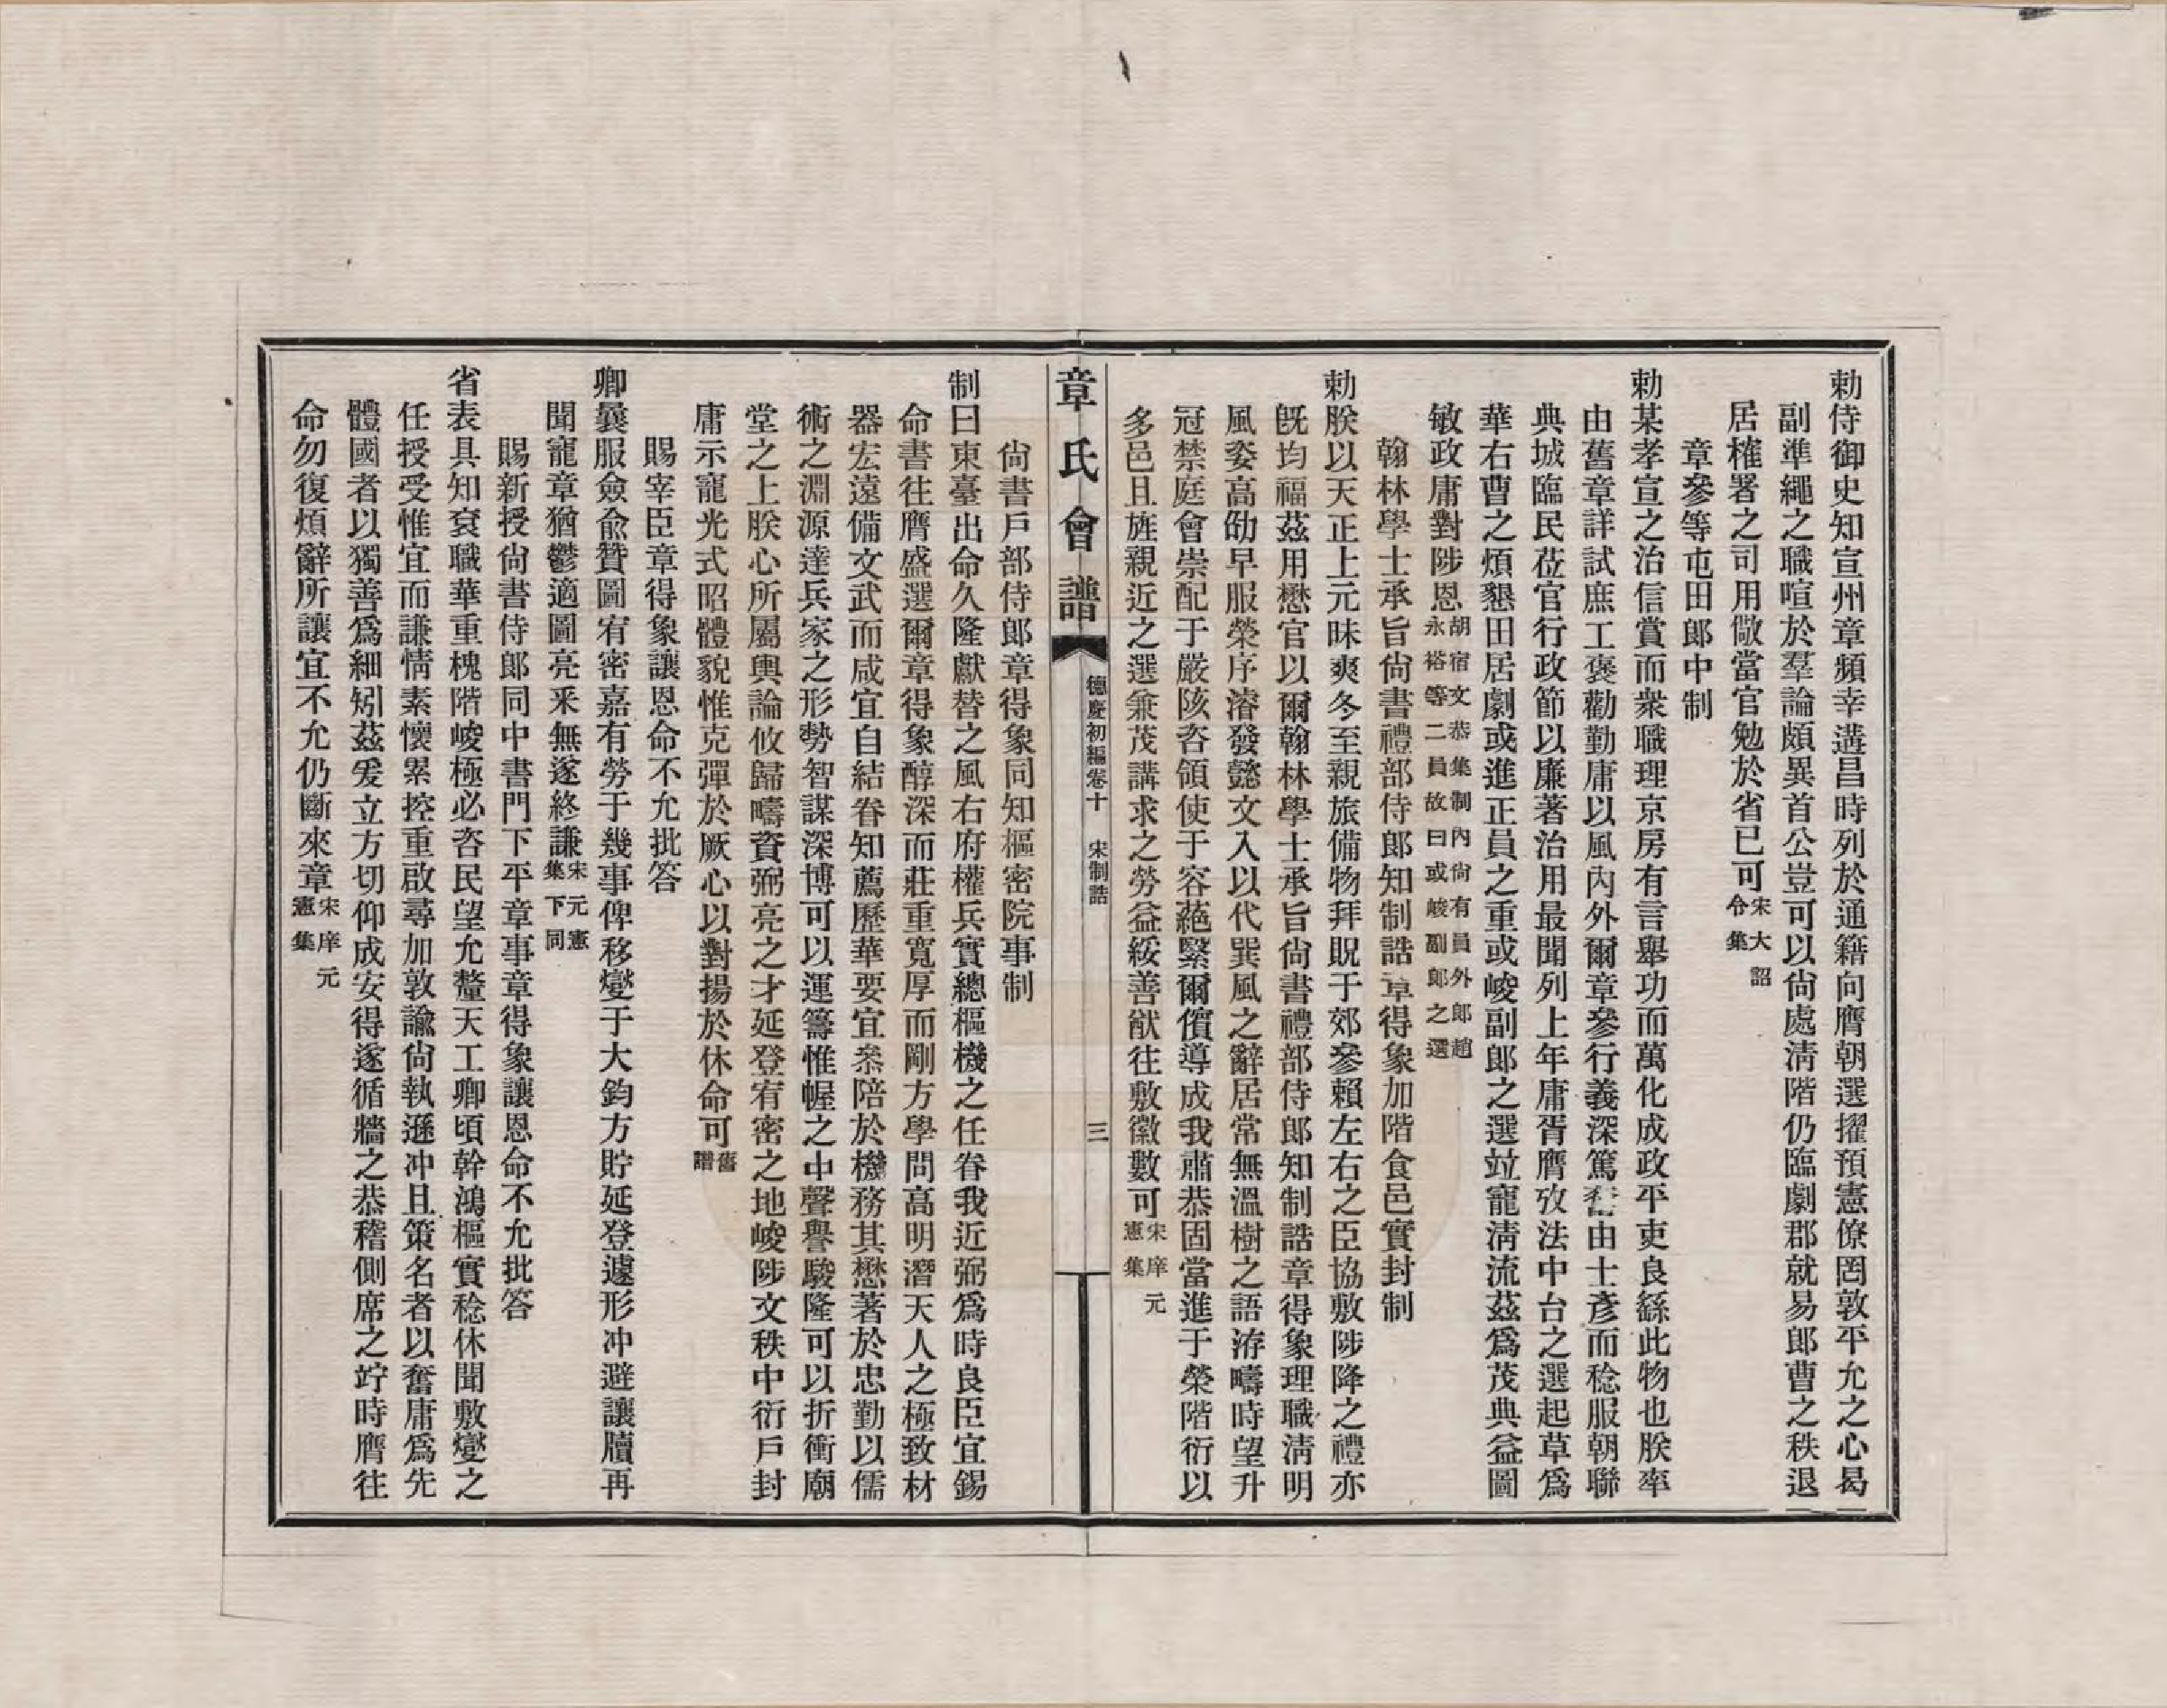 勅侍御史知宣州章頻幸遘昌時列於通籍向膺朝選擢預憲僚罔敦平允之心曷
副準繩之職喧於羣論頗異首公豈可以尙處淸階仍臨劇郡就易郎曹之秩退
居榷署之司用儆當官勉於省已可宋大詔令集
章參等屯田郎中制
勅某孝宣之治信賞而衆職理京房有言舉功而萬化成政平吏良繇此物也朕率
由舊章詳試庶工褒勸勤庸以風內外爾章參行義深篤由士彥而稔服朝聯
典城臨民莅官行政節以廉著治用最聞列上年庸胥膺攷法中台之選起草爲
華右曹之煩懇田居劇或進正員之重或峻副郎之選竝寵淸流茲爲茂典益圖
敏政庸對陟恩胡宿文恭集制內尙有員外郎趙永裕等二員故曰或峻副郎之選
翰林學士承旨尙書禮部侍郎知制誥章得象加階食邑實封制
勅朕以天正上元昧爽冬至親旅備物拜貺于郊參賴左右之臣協敷陟降之禮亦
旣均福茲用懋官以爾翰林學士承旨尙書禮部侍郎知制誥章得象理職淸明
風姿高劭早服榮序濬發懿文入以代巽風之辭居常無溫樹之語洊疇時望升
冠禁庭會崇配于嚴陔咨領使于容蕝緊爾儐導成我肅恭固當進于榮階衍以
多邑且旌親近之選兼茂講求之勞益綏善猷往敷徽數可宋庠元憲集
章氏會譜
德慶初編卷十　宋制誥
三
尙書戶部侍郎章得象同知樞密院事制
制曰東臺出命久隆獻替之風右府權兵實總樞機之任眷我近弼爲時良臣宜錫
命書往膺盛選爾章得象醇深而莊重寬厚而剛方學問高明潛天人之極致材
器宏遠備文武而咸宜自結眷知薦歷華要宜叅陪於機務其懋著於忠勤以儒
術之淵源達兵家之形勢智謀深博可以運籌惟幄之中聲譽駿隆可以折衝廟
堂之上朕心所屬輿論攸歸疇資弼亮之才延登宥密之地峻陟文秩中衍戶封
庸示寵光式昭體貌惟克彈於厥心以對揚於休命可舊譜
賜宰臣章得象讓恩命不允批答
卿曩服僉兪贊圖宥密嘉有勞于幾事俾移燮于大鈞方貯延登遽形冲避讓牘再
聞寵章猶鬱適圖亮釆無遂終謙宋元憲集下同
賜新授尙書侍郎同中書門下平章事章得象讓恩命不允批答
省表具知袞職華重槐階峻極必咨民望允釐天工卿頃幹鴻樞實稔休聞敷燮之
任授受惟宜而謙情素懷累控重啟尋加敦諭尙執遜冲且策名者以奮庸爲先
體國者以獨善爲細矧茲爰立方切仰成安得遂循牆之恭稽側席之竚時膺往
命勿復煩辭所讓宜不允仍斷來章宋庠元憲集